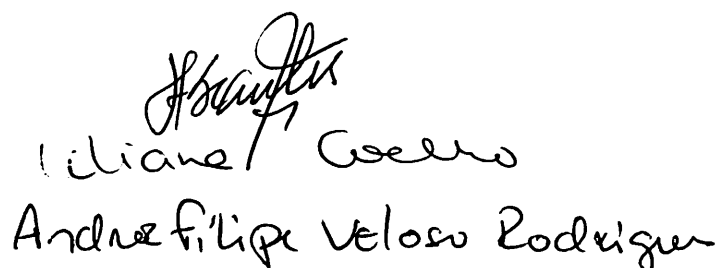 Liliana Coelho
André Filipe Veloso Rodrigues